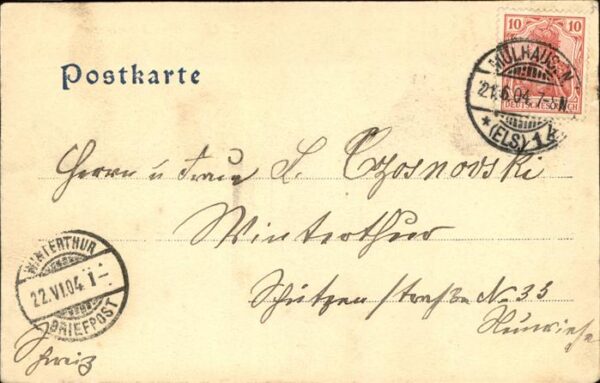 10 10
DEUTSCHES REICH
MÜLHAUSEN
21.6.04. 7-8 N
* (ELS) 1 k
Postkarte
Herrn u Frau L. Czosnovski
Winterthur
Schützenstraße No 35
Neuwiese
Schweiz
WINTERTHUR
22.VI.04. 1-
BRIEFPOST